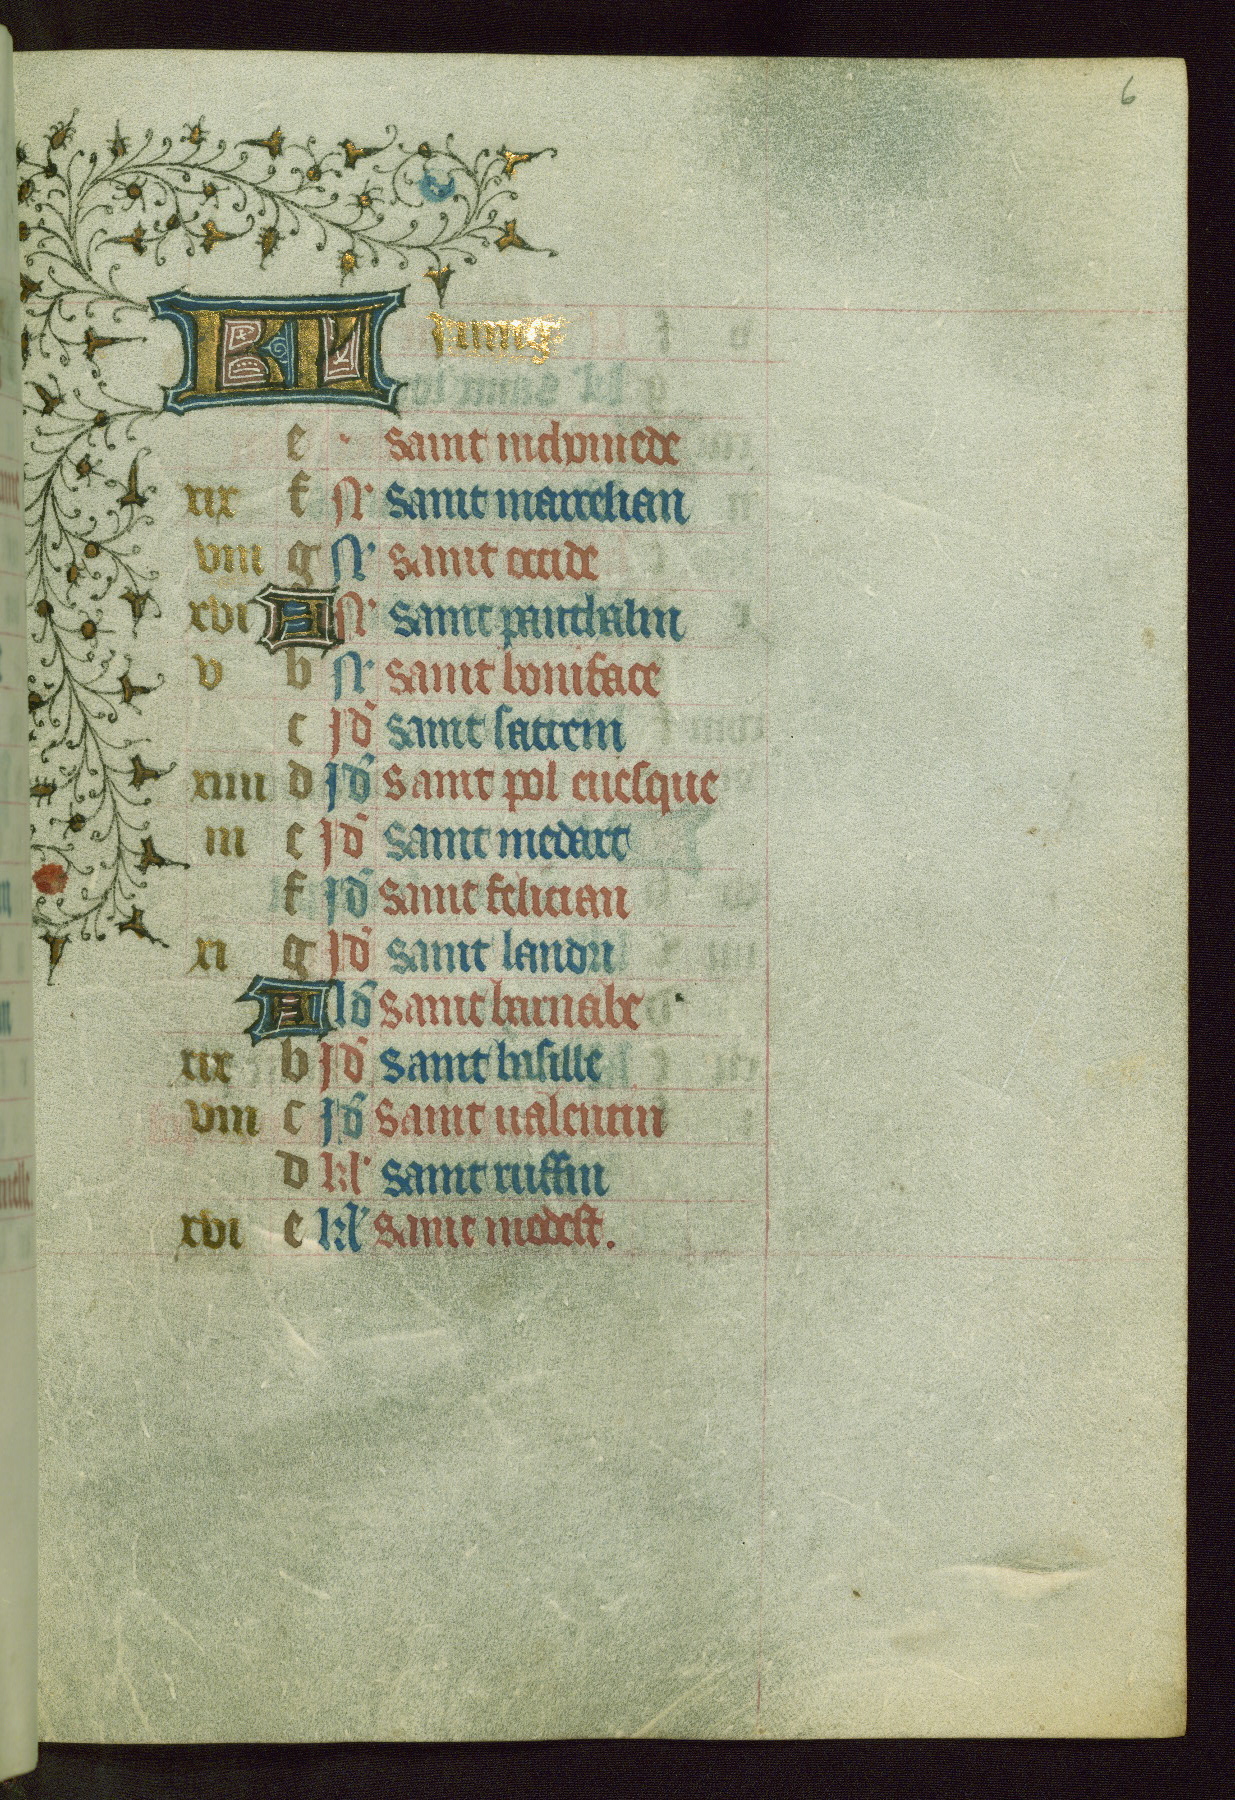 6
KL Iuing
e saint nichomede
xix f N saint marcelian
viii g N saint
xvi A N saint panthalin
v b N saint boniface
c Id saint
xiiii d Id saint pol evesque
iii e Id saint medart
f Id saint felician
xi g Id saint landri
A Id saint barnabe
xix b Id saint basille
viii c Id saint ualentin
d kl saint ruffin
xvi e kl saint modest.